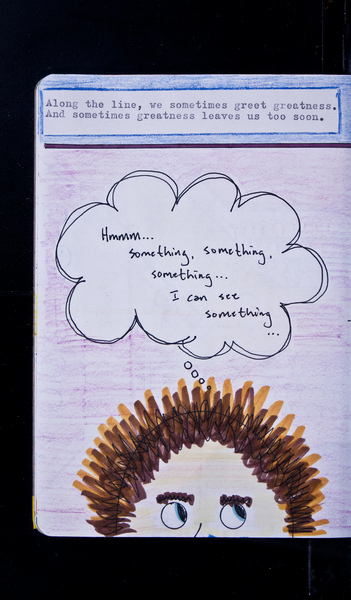 Along the line, we sometimes greet greatness.
And sometimes greatness leaves us too soon.
Hmmm...
something, something,
something...
I can see
something
...